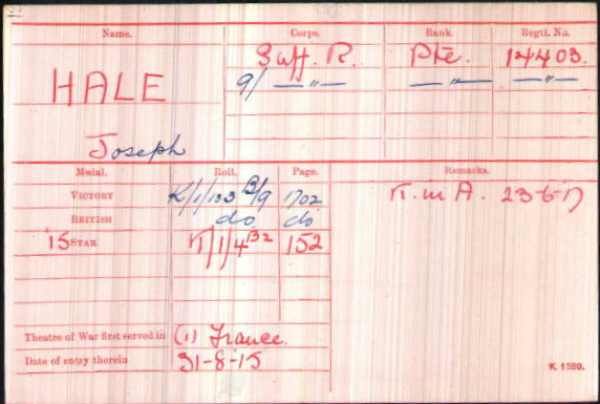 Name. Corps. Rank. Regtl. No.
HALE Suff. R. Pte. 14403.
9/ —"— —"— —"—
Joseph
Medal. Roll. Page. Remarks.
VICTORY K/1/103 B/9 1702 K. in A. 23-6-17
BRITISH do do
'15 STAR K/1/4 B2 152
Theatre of War first served in (1) France.
Date of entry therein 31-8-15
K. 1380.